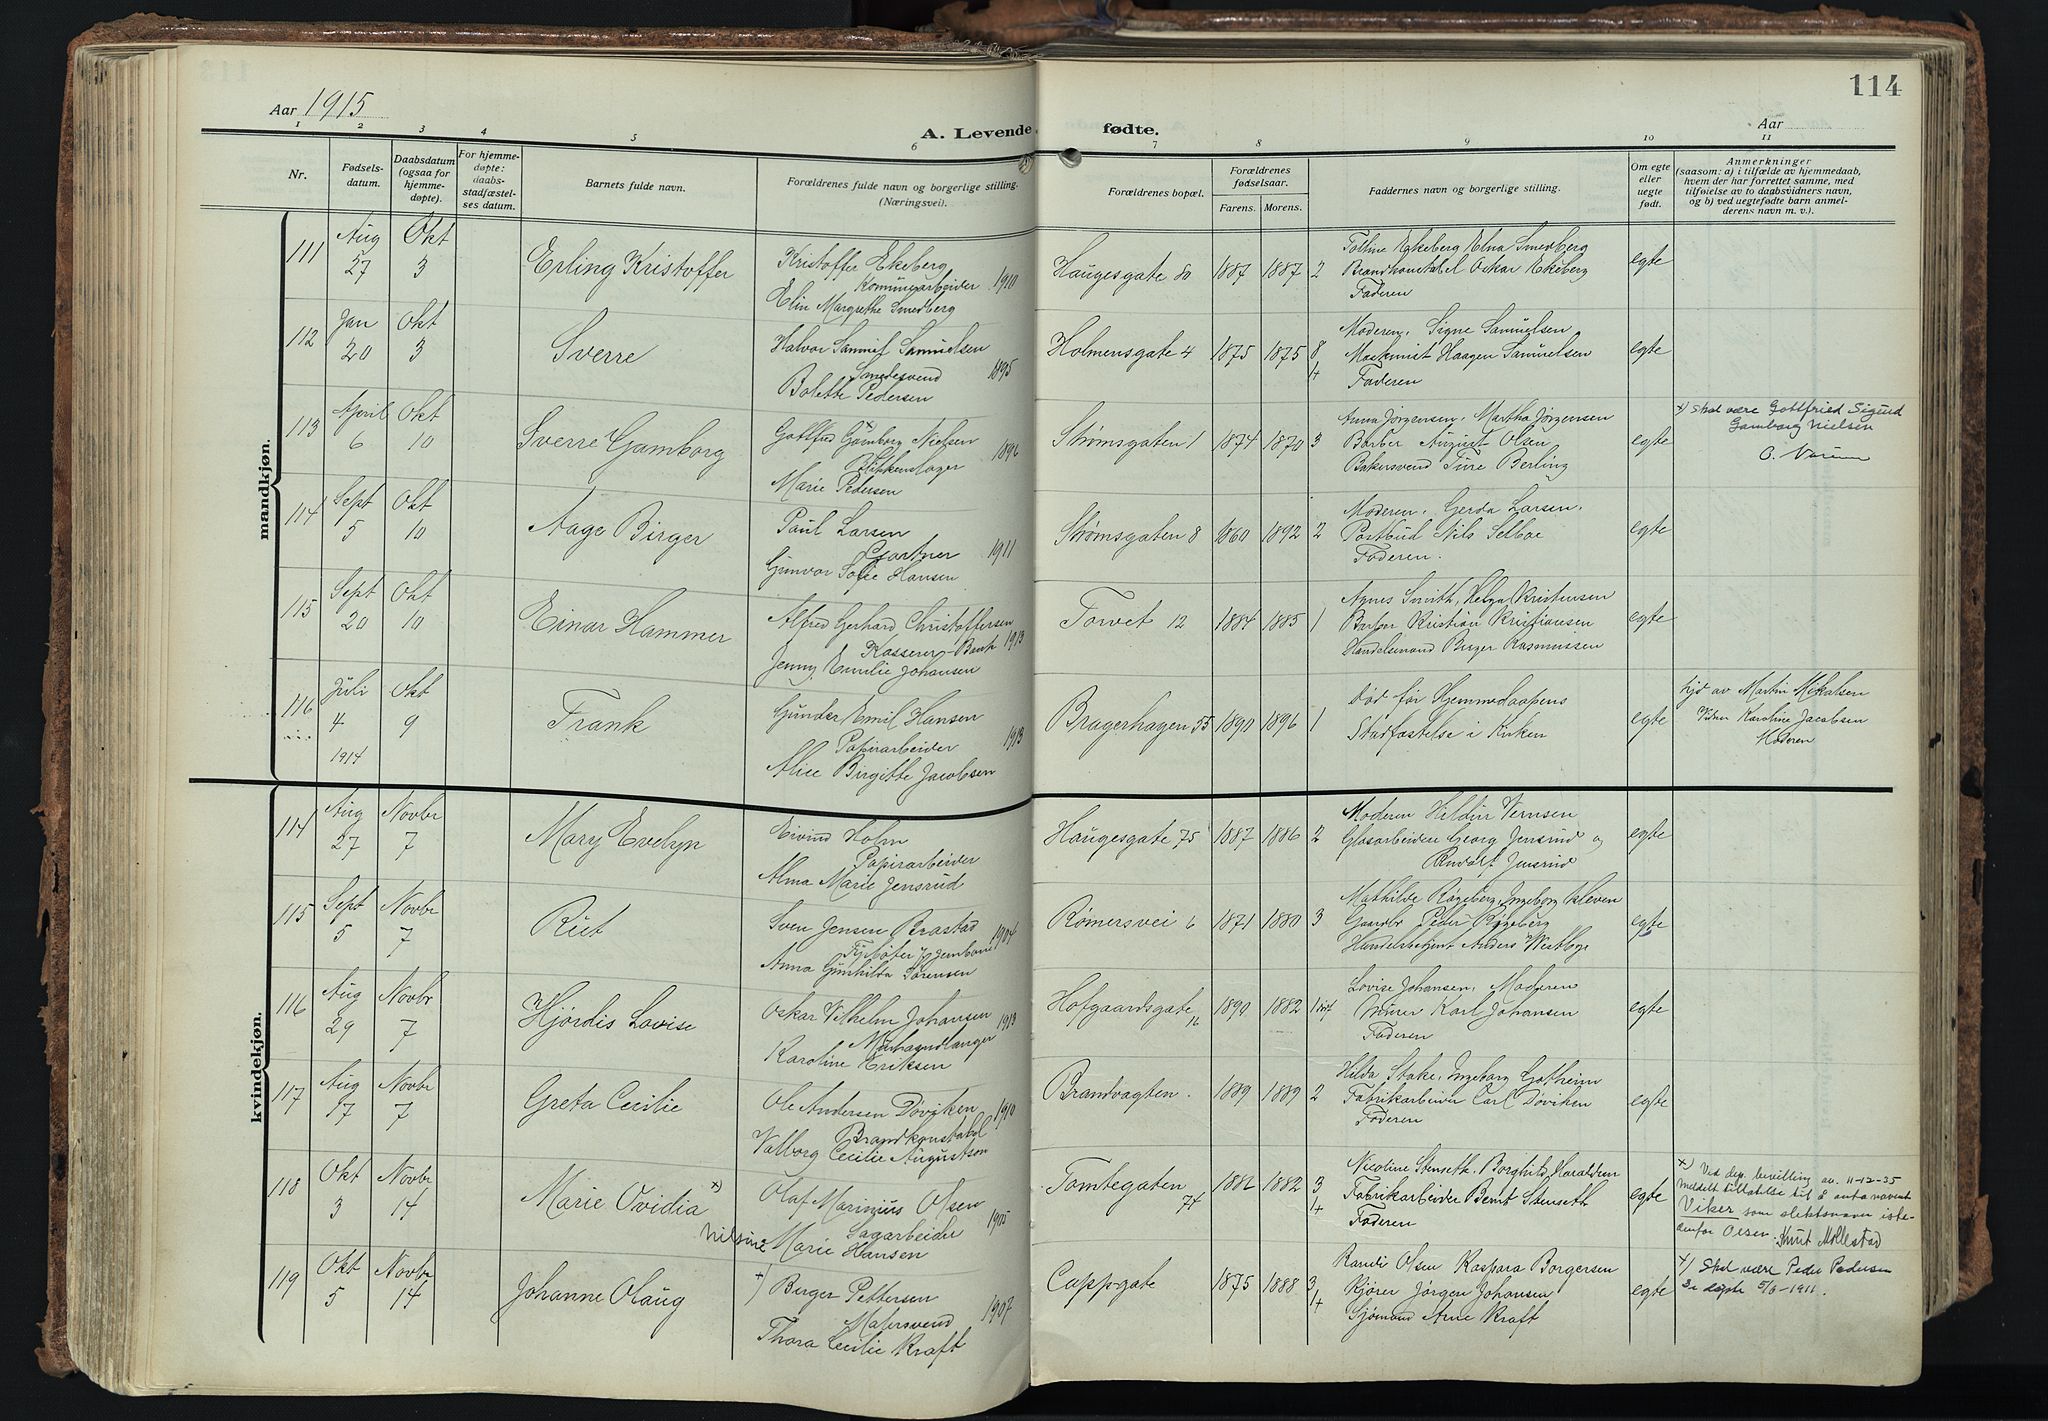 114
Aar 1915
A. Levende fødte.
Aar
1 2 3 4 5 6 7 8 9 10 11
Nr.
Fødsels-
datum.
Daabsdatum
(ogsaa for
hjemme-
døpte).
For hjemme-
døpte:
daabs-
stadfæstel-
ses datum.
Barnets fulde navn.
Forældrenes fulde navn og borgerlige stilling.
(Næringsvei).
Forældrenes bopæl.
Forældrenes
fødselsaar.
Farens. Morens.
Faddernes navn og borgerlige stilling.
Om egte
eller
uegte
født.
Anmerkninger
(saasom: a) i tilfælde av hjemmedaab,
hvem der har forrettet samme, med
tilføielse av to daabsvidners navn,
og b) ved uegtefødte barn anmel-
derens navn m. v.).
mandkjøn.
111 Aug 27 Okt 3
Erling Kristoffer
Kristoffer Ekeberg
Kommunearbeider 1910
Elin Margrethe Smedberg
Haugesgate 80 1887 1887 2
Ekeberg Elna Smedberg
Brandkonstabel Oskar Ekeberg
Faderen
egte
112 Jan 20 Okt 3
Sverre
Halvor Samuelsen
Smedesvend 1895
Bolette Pedersen
Holmensgate 4 1875 1875 8 1+
Moderen, Signe Samuelsen
Maskinist Haagen Samuelsen
Faderen
egte
113 April 6 Okt 10
Sverre Gamborg
Gottfred x) Gamborg Nielsen
Blikkenslager 1896
Marie Pedersen
Strømsgaten 1 1874 1870 3
Anna Jørgensen, Martha Jørgensen
Barber August Olsen
Bakersvend Ture Berling
egte
x) skal være Gottfried Sigurd
Gamborg Nielsen
114 Sept 5 Okt 10
Aage Birger
Paul Larsen
Gartner 1911
Gunvor Sofie Hansen
Strømsgaten 8 1860 1892 2
Moderen, Gerda Larsen,
Postbud Nils Selboe
Faderen.
egte
115 Sept 20 Okt 10
Einar Hammer
Alfred Gerhard Christoffersen
Kasserer - Bank 1913
Jenny Emilie Johansen
Torvet 12 1884 1885 1
Agnes Smith, Helga Kristensen
Barber Kristian Kristiansen
Handelsmand Birger Rasmussen
egte
116 Juli 4 1914 Okt 9
Frank
Gunder Emil Hansen
Papirarbeider 1913
Alice Birgitte Jacobsen
Bragerhagen 55 1890 1896 1
Død før Hjemmedaapens
Stadfæstelse i Kirken
egte
av Martin Mikalsen
Karoline Jacobsen
Moderen
kvindekjøn.
114 Aug 27 Novbr 7
Mary Evelyn
Eivind Holm
Papirarbeider
Alma Marie Jensrud
Haugesgate 75 1887 1886 2
Moderen Hildur Vernsen
Glasarbeidere Georg Jensrud og
Jensrud
egte
115 Sept 5 Novbr 7
Rut
Sven Jensen Brastad
Fyrbøter Jernbane 1904
Anna Gunhilda Sørensen
Rømersvei 6 1871 1880 3
Mathilde Røgeberg, Ingeborg Kleven
Gaardbr Peder Røgeberg
Handelsbetjent Anders Westbye
egte
116 Aug 29 Novbr 7
Hjørdis Lovise
Oskar Vilhelm Johansen
Murhaandlanger 1913
Karoline Eriksen
Hofgaardsgate 16 1890 1882 1
Lovise Johansen, Moderen
Murer Karl Johansen
Faderen
egte
117 Aug 17 Novbr 7
Greta Cecilie
Ole Andersen Døviken
Brandkonstabel 1910
Valborg Cecilie Augustson
Brandvagten. 1889 1889 2
Hilda Stake, Ingeborg Gotheim
Fabrikarbeider Carl Døviken
Faderen
egte
118 Okt 3 Novbr 14
Marie Ovidia x)
Nilsine
Olaf Marinius Olsen
Sagarbeider 1905
Marie Hansen
Tomtegaten 74 1882 1882 3 1+
Nicoline Stenseth, Borghild Haraldsen
Fabrikarbeider Bernt Stenseth
Faderen
egte
x) Ved dep. bevilling av 11-12-35
meddelt tillatelse til å anta navnet
Viker som slektsnavn iste-
denfor Olsen. Knut Mollestad
119 Okt 5 Novbr 14
Johanne Olaug
+) Birger Pettersen
Malersvend 1907
Thora Cecilie Kraft
Cappsgate 1875 1888 3 1+
Randi Olsen Kaspara Borgersen
Kjører Jørgen Johansen
Sjømand Arne Kraft
egte
x) Skal være Peder Pedersen